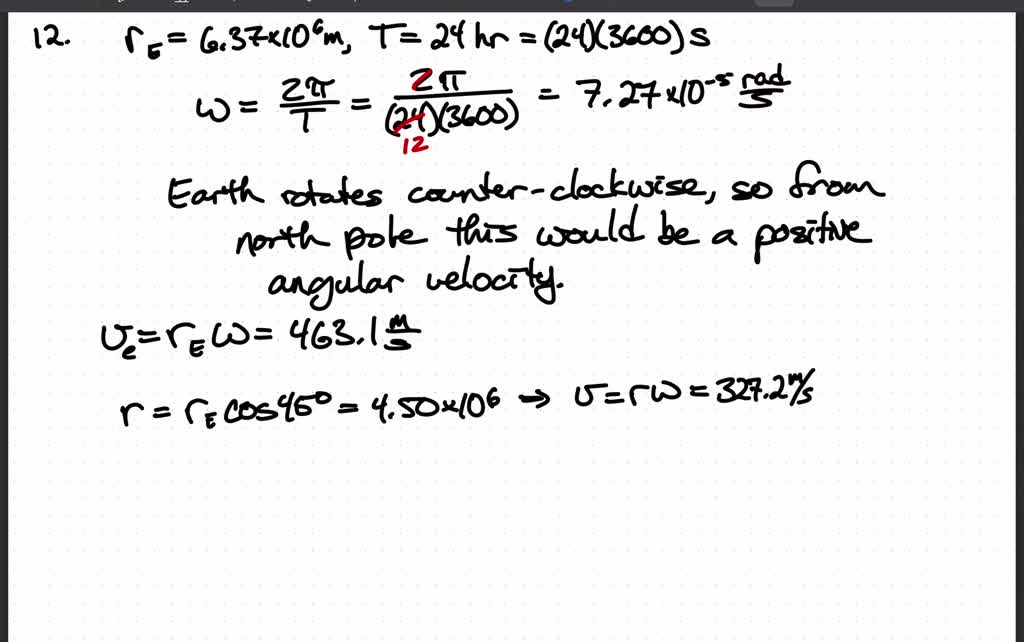 12. r_E = 6.37×10⁶ m, T = 24 hr = (24)(3600) s
ω = 2π/T = 2π/(24)(3600) = 7.27×10⁻⁵ rad/s
12
Earth rotates counter-clockwise, so from
north pole this would be a positive
angular velocity.
v_e = r_E ω = 463.1 m/s
r = r_E cos45° = 4.50×10⁶ → v = rω = 327.2 m/s